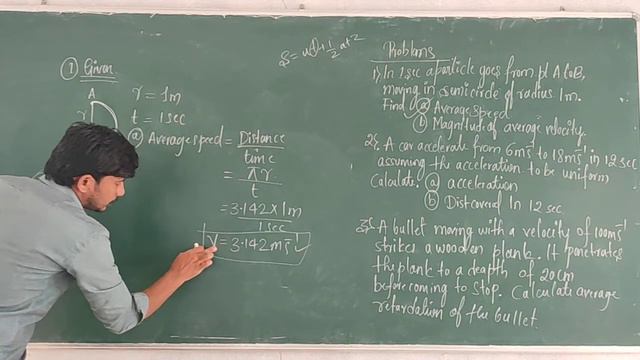 S = ut + 1/2 at²
① Given
A
r
r = 1m
t = 1sec
ⓐ Average speed = Distance
time
= πr
t
= 3.142 x 1m
1sec
V = 3.142 ms⁻¹ ✓
Problems
1) In 1sec a particle goes from pt A to B,
moving in semicircle of radius 1m.
Find ⓐ Average speed
ⓑ Magnitude of average velocity.
2) A car accelerate from 6ms⁻¹ to 18ms⁻¹ in 12 sec
assuming the accleration to be uniform
Calculate. ⓐ acceleration
ⓑ Dist covered In 12 sec
3) A bullet moving with a velocity of 100ms⁻¹
strikes a wooden plank. It penetrates
the plank to a deapth of 20cm
before coming to stop. Calculate average
retardation of the bullet.